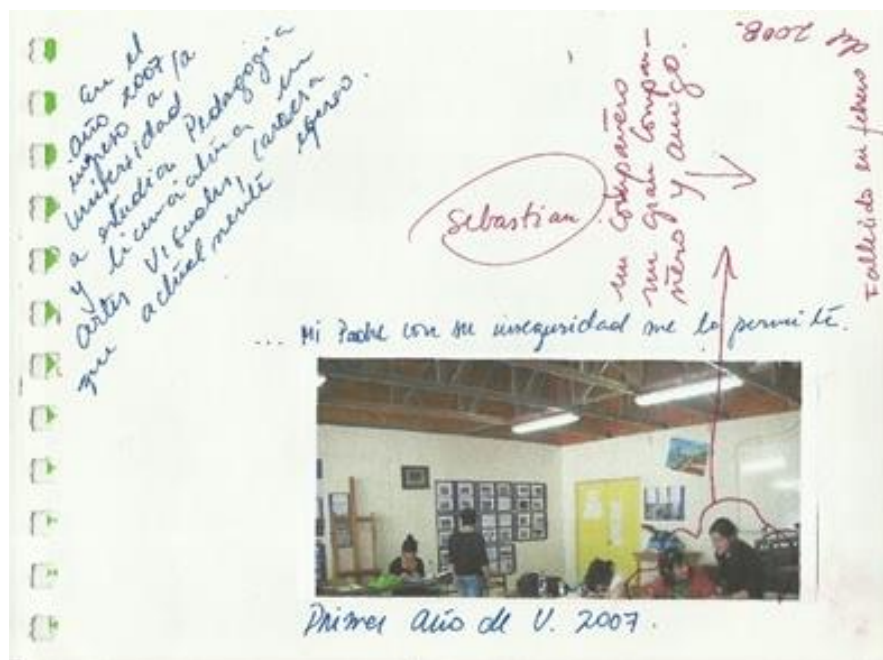 En el
año 2007
ingreso a la
universidad
a estudiar Pedagogía
y licenciatura en
artes visuales, carrera
que actualmente egreso.
Sebastian
un compañero
un gran compa-
ñero y amigo.
Fallecido en febrero
del 2008.
... Mi Padre con su inseguridad me lo permite.
Primer año de U. 2007.